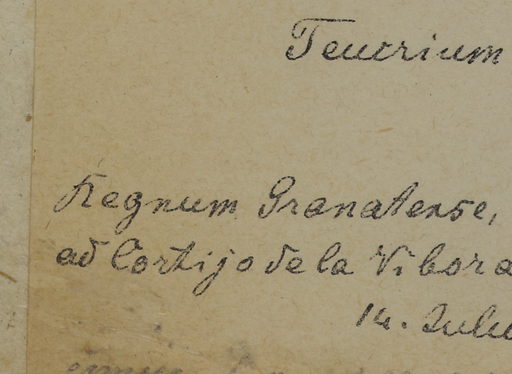 Teucrium
Regnum Granatense,
ad Cortijo de la Vibora
14. Juli